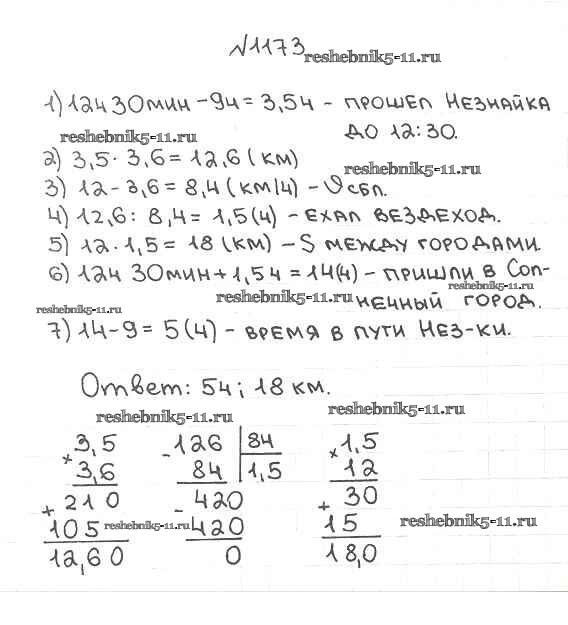 №1173
reshebnik5-11.ru
1) 12ч 30мин - 9ч = 3,5ч - прошел Незнайка
до 12:30.
reshebnik5-11.ru
2) 3,5 · 3,6 = 12,6 (км)
reshebnik5-11.ru
3) 12 - 3,6 = 8,4 (км/ч) - υ сбл.
4) 12,6 : 8,4 = 1,5 (ч) - ехал вездеход.
5) 12 · 1,5 = 18 (км) - S между городами.
6) 12ч 30мин + 1,5ч = 14 (ч) - пришли в Сол-
reshebnik5-11.ru
reshebnik5-11.ru
нечный город.
reshebnik5-11.ru
7) 14 - 9 = 5 (ч) - время в пути Нез-ки.
Ответ: 5ч; 18 км.
reshebnik5-11.ru
reshebnik5-11.ru
3,5 - 126 84 1,5
× 3,6 84 1,5 × 12
+ 210 - 420 + 30
105 reshebnik5-11.ru 420 15 reshebnik5-11.ru
12,60 0 18,0